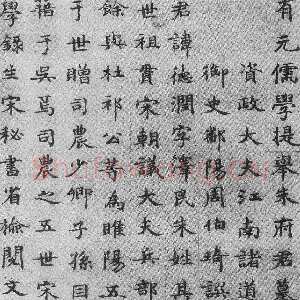 有元儒學提舉朱府君墓
資政大夫江南諸道
御史鄱陽周伯琦譔
君諱德潤字澤民朱姓其
世祖貫宋朝議大夫兵部
餘與杜祁公等為睢陽五
于世贈司農少卿子孫因
藉于吳焉司農之五世宋
學錄生宋秘書省檢閱文